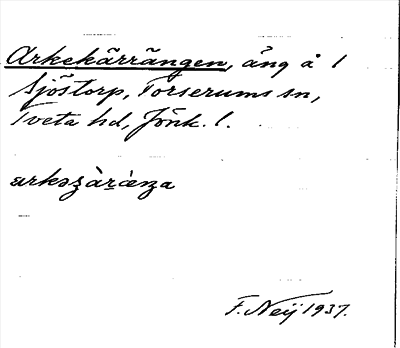 Arkekärrängen, äng å 1
Sjöstorp, Torserums sn,
Tveta hd, Jönk. l.
F. Neij 1937.